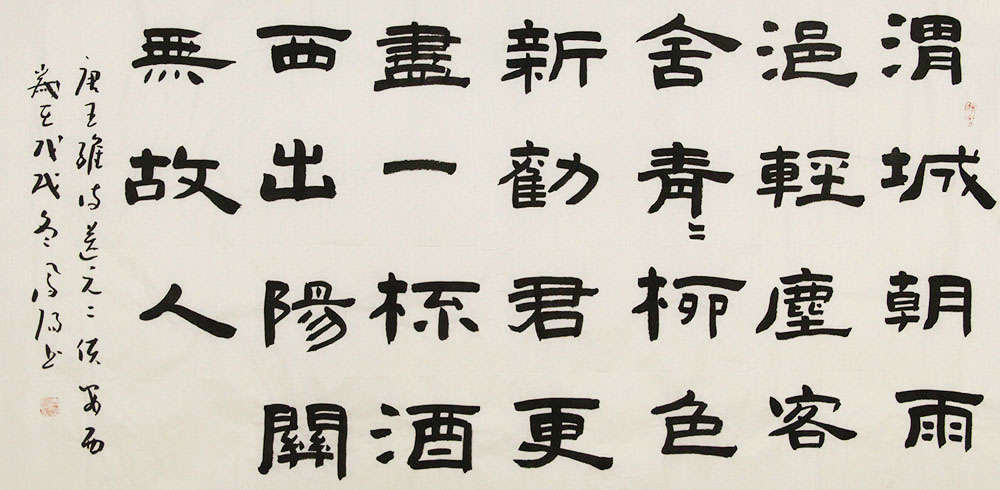 渭城朝雨
浥輕塵客
舍青〻柳色
新勸君更
盡一杯酒
西出陽關
無故人
唐王維詩送元二使安西
歲在戊戌冬